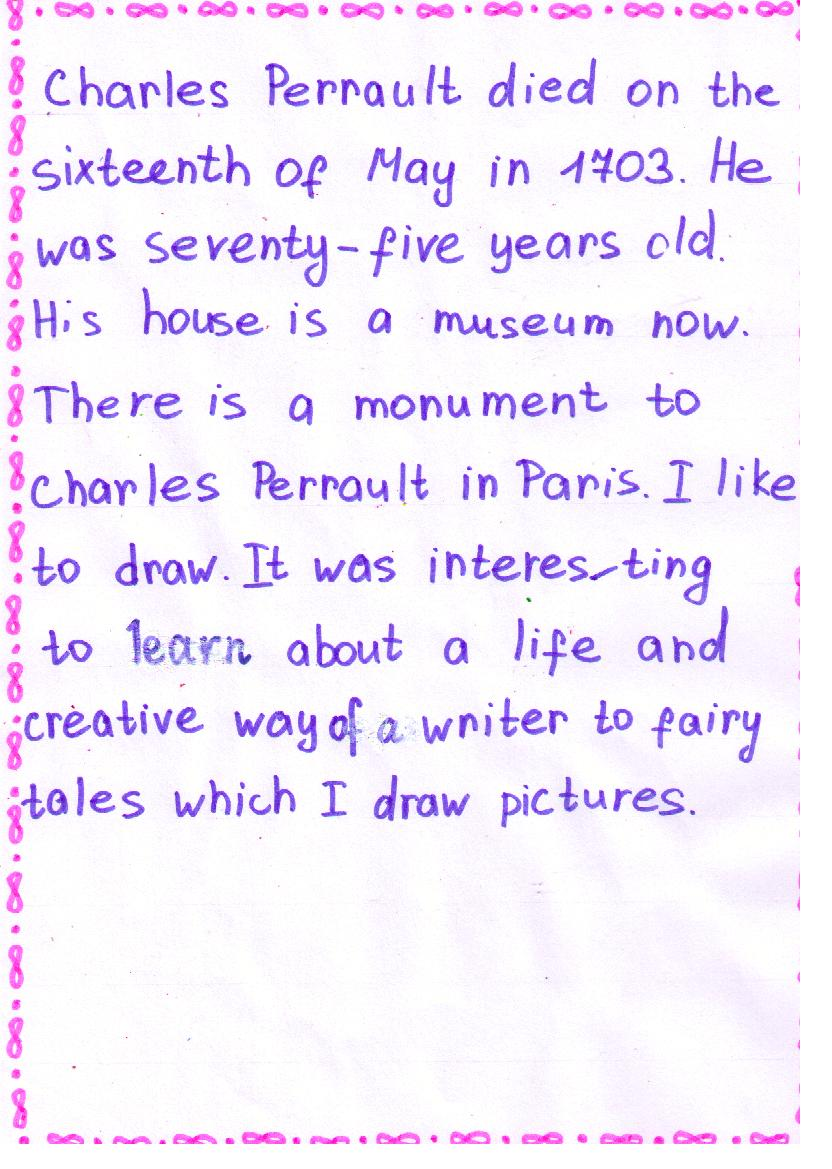 Charles Perrault died on the
sixteenth of May in 1703. He
was seventy-five years old.
His house is a museum now.
There is a monument to
Charles Perrault in Paris. I like
to draw. It was interes-ting
to learn about a life and
creative way of a writer to fairy
tales which I draw pictures.